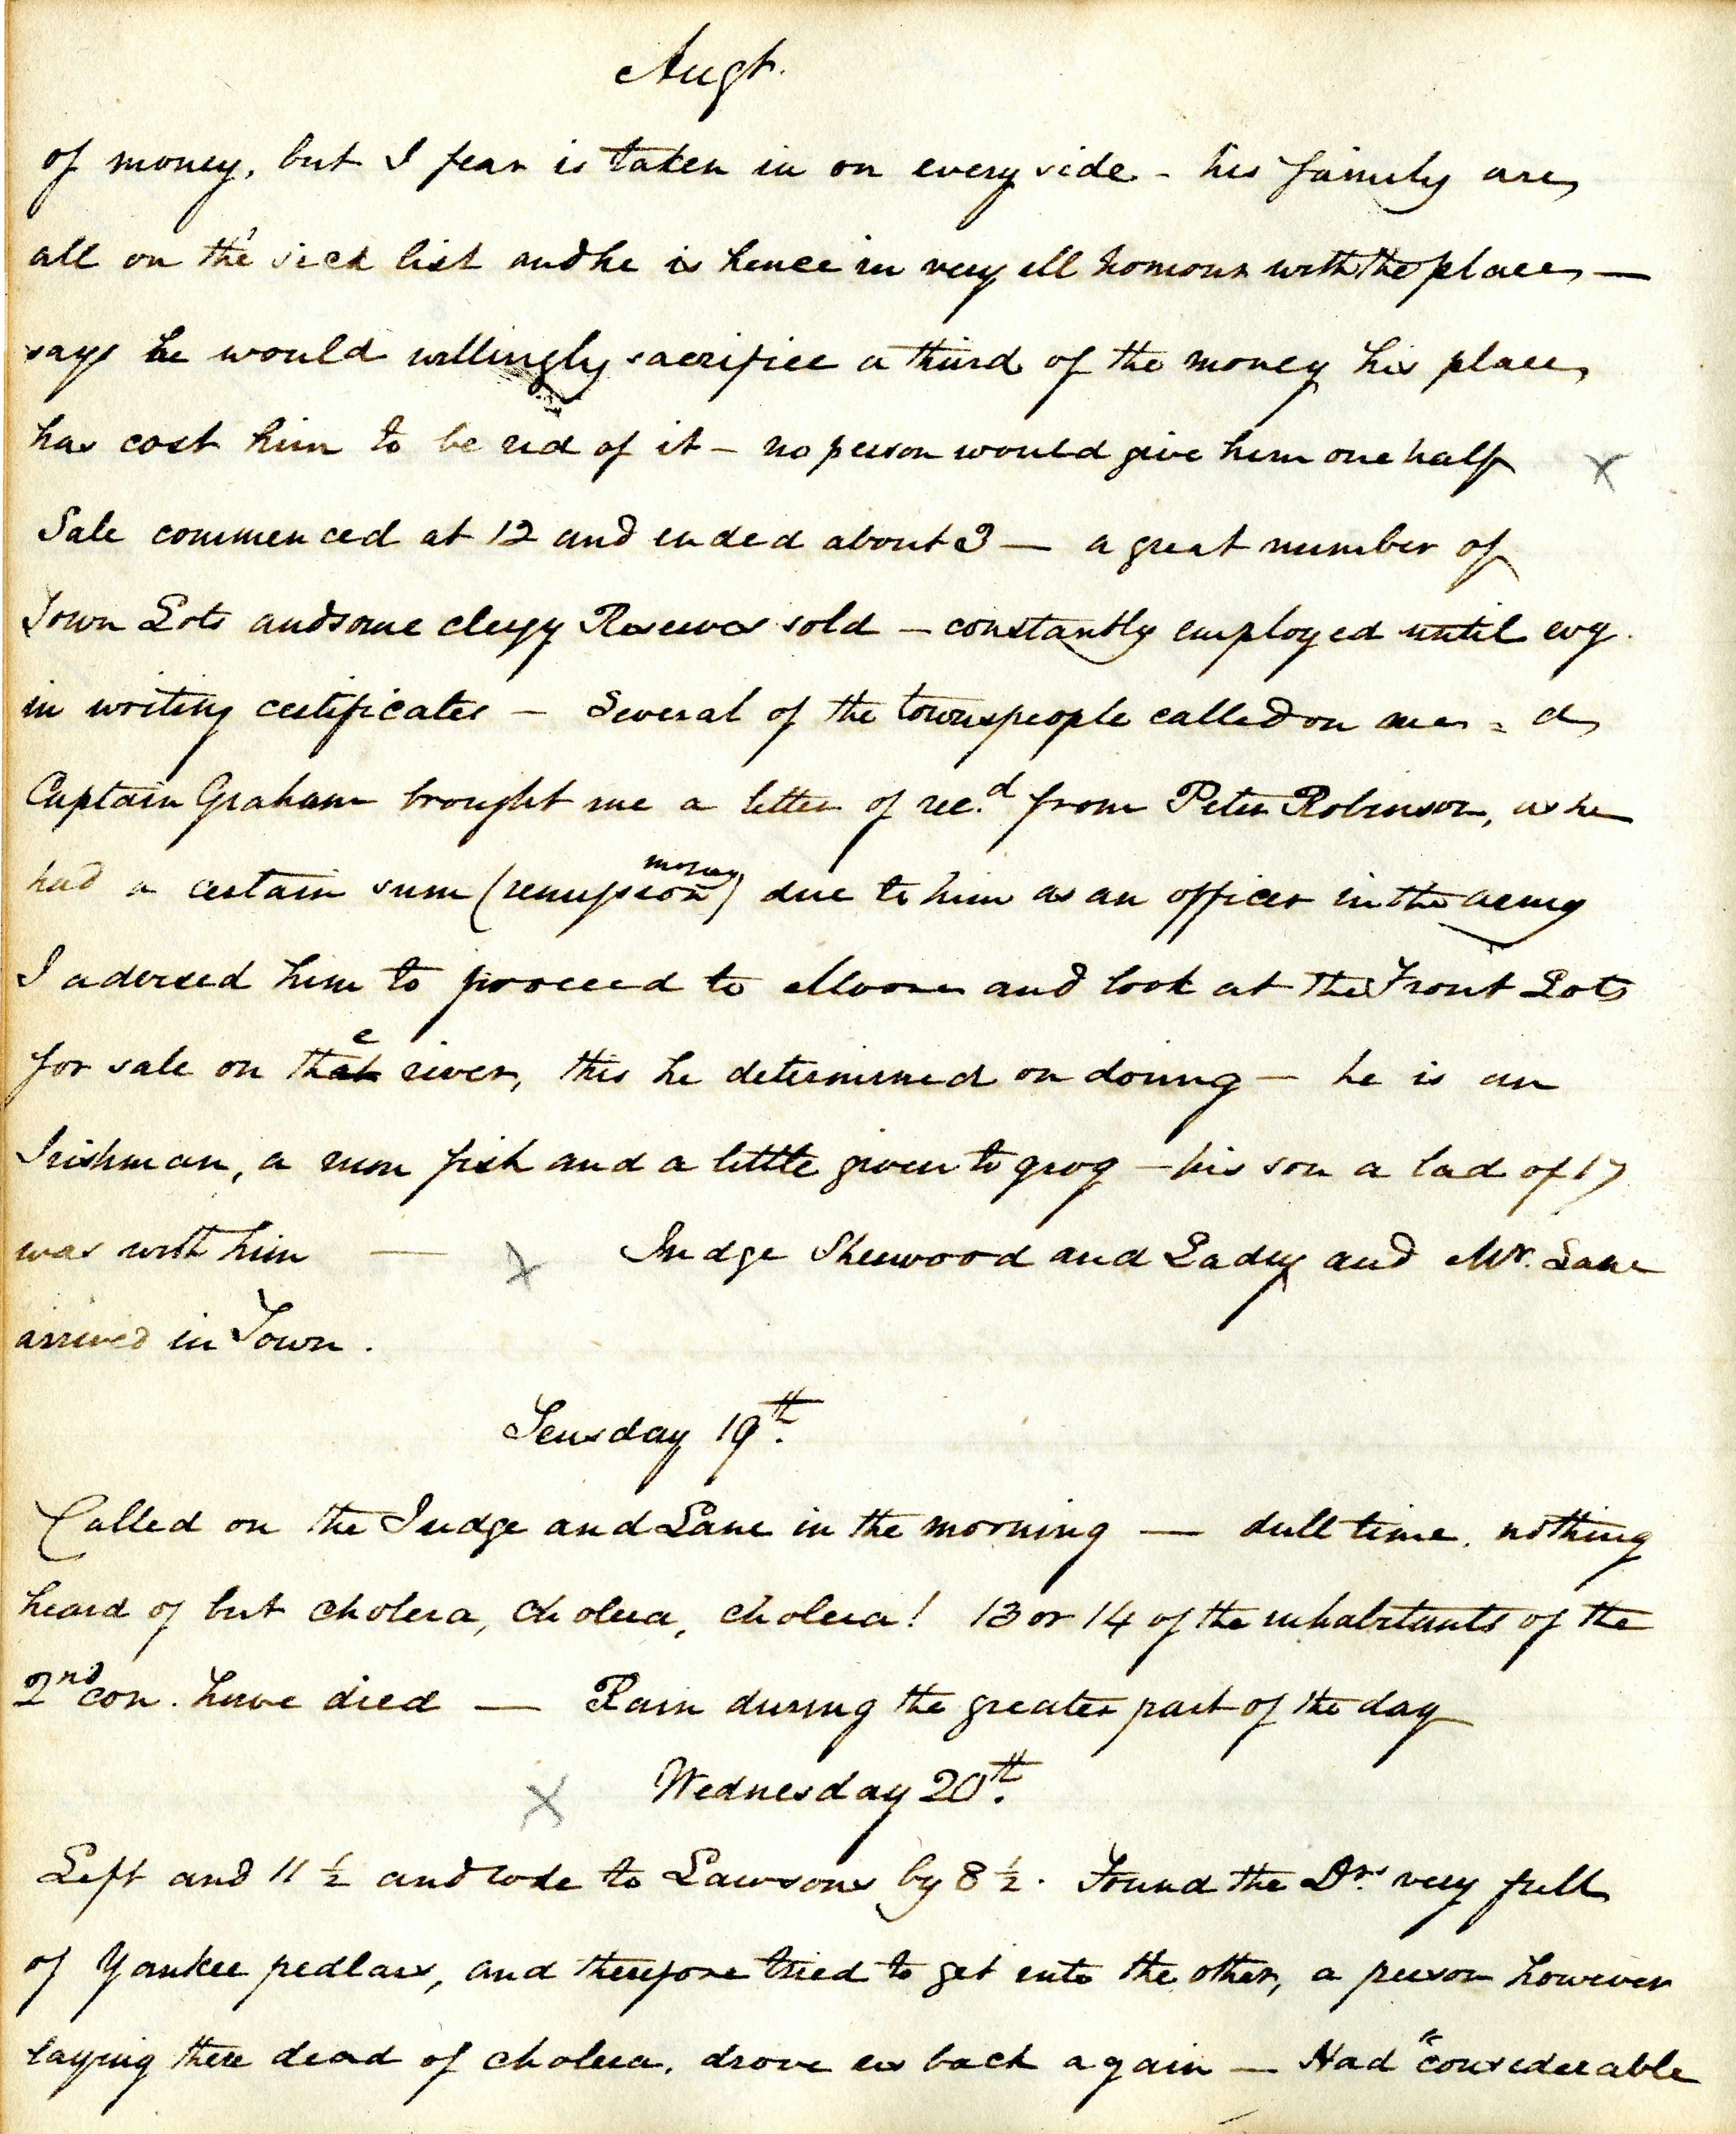 Augt.
of money, but I fear is taken in on every side - his family are
all on the sick list and he is hence in very ill homour with the place —
says he would willingly sacrifice a third of the money his place
has cost him to be rid of it - no person would give him one half X
Sale commenced at 12 and ended about 3 — a great number of
Town Lots and some clergy Reserves sold — constantly employed until evg.
in writing certificates — Several of the townspeople called on me - a
Captain Graham brought me a letter of rec.d from Peter Robinson, as he
money
had a certain sum (remission) due to him as an officer in the army
I advised him to proceed to Moore and look at the Front Lots
e
for sale on that river, this he determined on doing — he is an
Irishman, a rum fish and a little given to grog — his son a lad of 17
was with him — X Judge Sherwood and Lady and Mr. Lane
arrived in Town.
Teusday 19th.
Called on the Judge and Lane in the morning — dull time. nothing
heard of but cholera, cholera, cholera! 13 or 14 of the inhabitants of the
2nd con. have died — Rain during the greater part of the day
X Wednesday 20th.
Left and 11 ½ and rode to Lawsons by 8 ½. Found the Dr. very full
of Yankee pedlars, and therefore tried to get into the other, a person however
laying there dead of cholera, drove us back again — Had "considerable